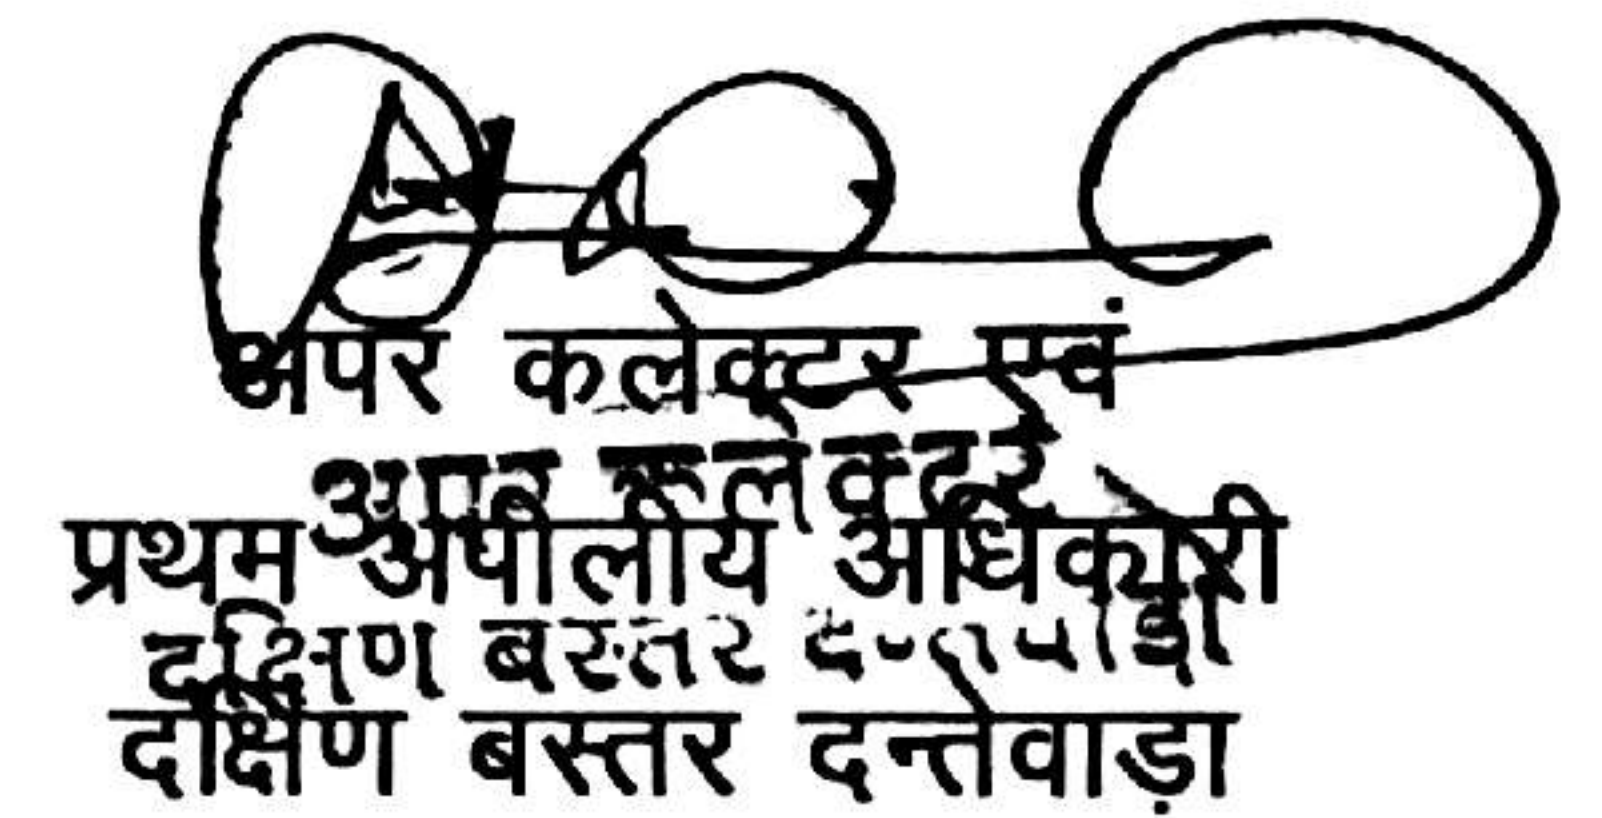 अपर कलेक्टर एवं
अपर कलेक्टर
प्रथम अपीलीय अधिकारी
दक्षिण बस्तर दन्तेवाड़ा
दक्षिण बस्तर दन्तेवाड़ा